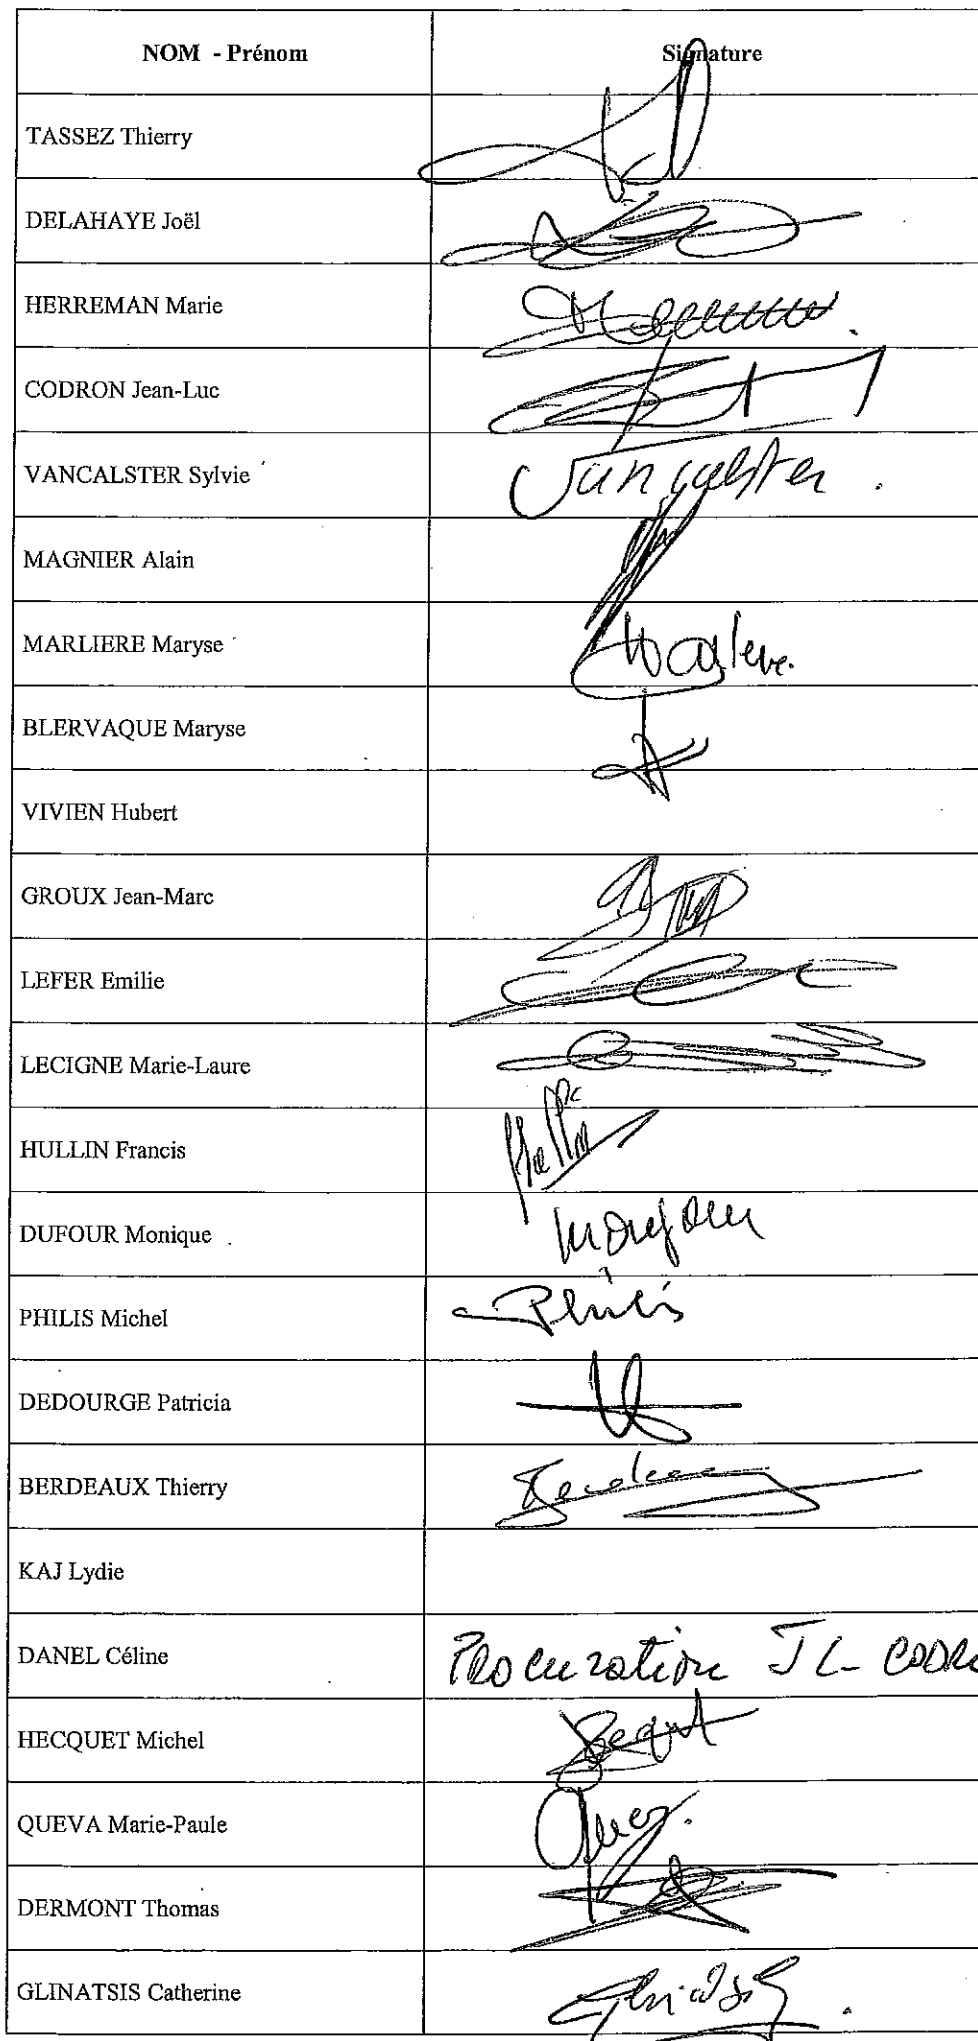 NOM - Prénom Signature
TASSEZ Thierry
DELAHAYE Joël
HERREMAN Marie
CODRON Jean-Luc
VANCALSTER Sylvie Vancalster.
MAGNIER Alain
MARLIERE Maryse
BLERVAQUE Maryse
VIVIEN Hubert
GROUX Jean-Marc
LEFER Emilie
LECIGNE Marie-Laure
HULLIN Francis
DUFOUR Monique
PHILIS Michel Philis
DEDOURGE Patricia
BERDEAUX Thierry
KAJ Lydie
DANEL Céline Procuration JL-CODR
HECQUET Michel
QUEVA Marie-Paule
DERMONT Thomas
GLINATSIS Catherine